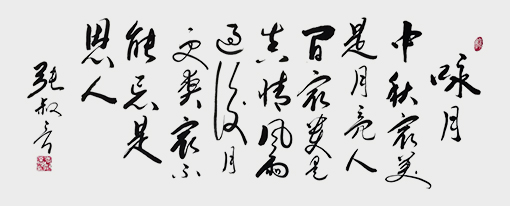 咏月
中秋最美
是月亮人
间最美是
真情风雨
过后月
更美最不
能忘是
恩人
张叔